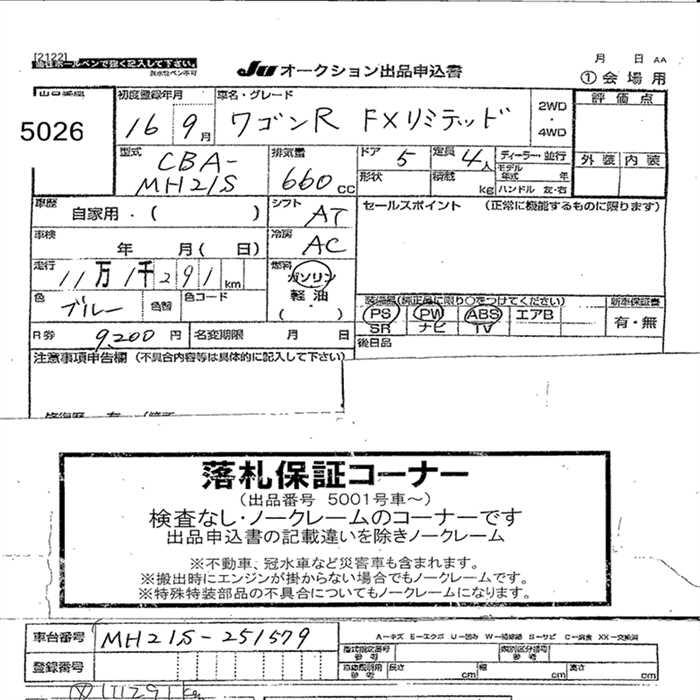 [2122]
黒色ボールペンで強く記入して下さい。
JU オークション出品申込書
月 日 AA
①会場用
出品番号 初度登録年月 車名・グレード 評価点
5026 16 9月 ワゴンR FXリミテッド 2WD・4WD
型式 排気量 ドア 5 定員 4人 ディーラー・並行 外装 内装
CBA-MH21S 660 CC 形状 積載 kg モデル年式 年
ハンドル 左・右
車歴 自家用・( ) シフト AT セールスポイント (正常に機能するものに限ります)
車検 年 月( 日) 冷房 AC
走行 11万1千291km 燃料 ガソリン
軽油
( ・ )
色 ブルー 色替 色コード
装備品(純正品に限り○をつけてください) 新車保証書
PS PW ABS エアB 有・無
SR ナビ TV
R券 9,200円 名変期限 月 日 後日品
注意事項申告欄 (不具合内容等は具体的に記入して下さい)
落札保証コーナー
(出品番号 5001号車~)
検査なし・ノークレームのコーナーです
出品申込書の記載違いを除きノークレーム
※不動車、冠水車など災害車も含まれます。
※搬出時にエンジンが掛からない場合でもノークレームです。
※特殊特装部品の不具合についてもノークレームになります。
車台番号 MH21S-251579
A-キズ E-エクボ U-凹み W-補修跡 S-サビ C-腐食 XX-交換済
型式指定番号 参考 類別区分番号 参考
登録番号
長さ cm 幅 cm 高さ cm
111291 km